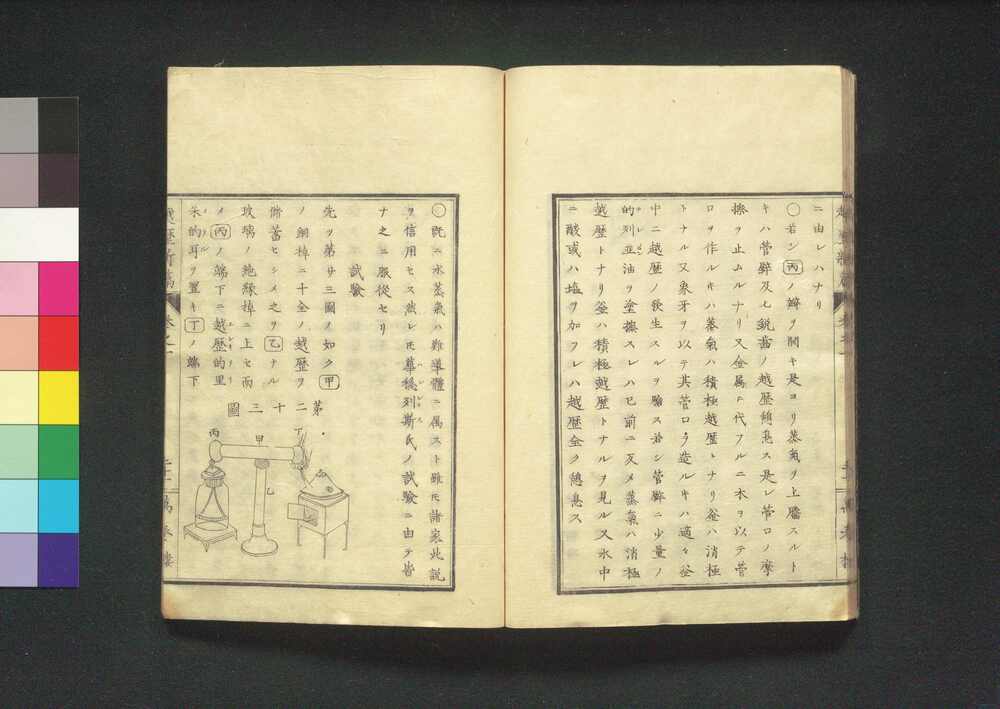 ニ由レハナリ
〇若シ丙ノ辨ヲ開キ是ヨリ蒸氣ヲ上騰スルト
キハ管嘴及ヒ鋭歯ノ越歴憩息ス是レ管口ノ摩
擦ヲ止ムルナリ又金属ニ代フルニ木ヲ以テ管
口ヲ作ルキハ蒸氣ハ積極越歴トナリ釜ハ消極
トナル又象牙ヲ以テ其管口ヲ造ルキハ適々釜
中ニ越歴ノ発生スルヲ驗ス若シ管嘴ニ少量ノ
的列亜油ヲ塗擦スレハ已前ニ反メ蒸氣ハ消極
越歴トナリ釜ハ積極越歴トナルヲ見ル又水中
ニ酸或ハ塩ヲ加フレハ越歴全ク憩息ス
〇既ニ水蒸氣ハ難導體ニ属スト雖モ諸家此説
ヲ信用セス然レ𪜈華穏列斯氏ノ試驗ニ由テ皆
ナ之ニ服從セリ
試驗
先ツ第廿三圖ノ如ク甲
ノ銅棹ニ十全ノ越歴ヲ
備蓄セシメ之ヲ乙ナル
玻璃ノ絶縁棹ニ上セ而
メ丙ノ端下ニ越歴的里
失的耳ヲ置キ丁ノ端下
第二十三圖
丙
甲
丁
乙
越歴新篇
卷之一